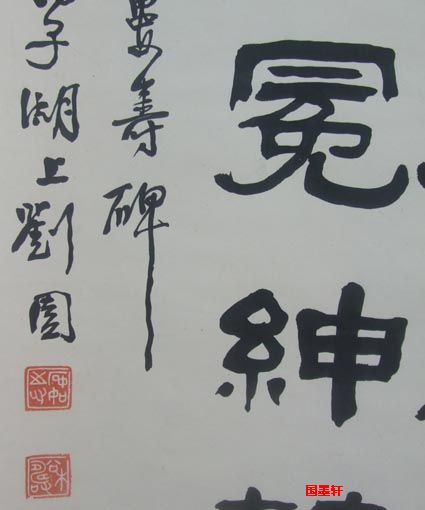 冕紳
婁壽碑
子湖上劉園
国墨轩